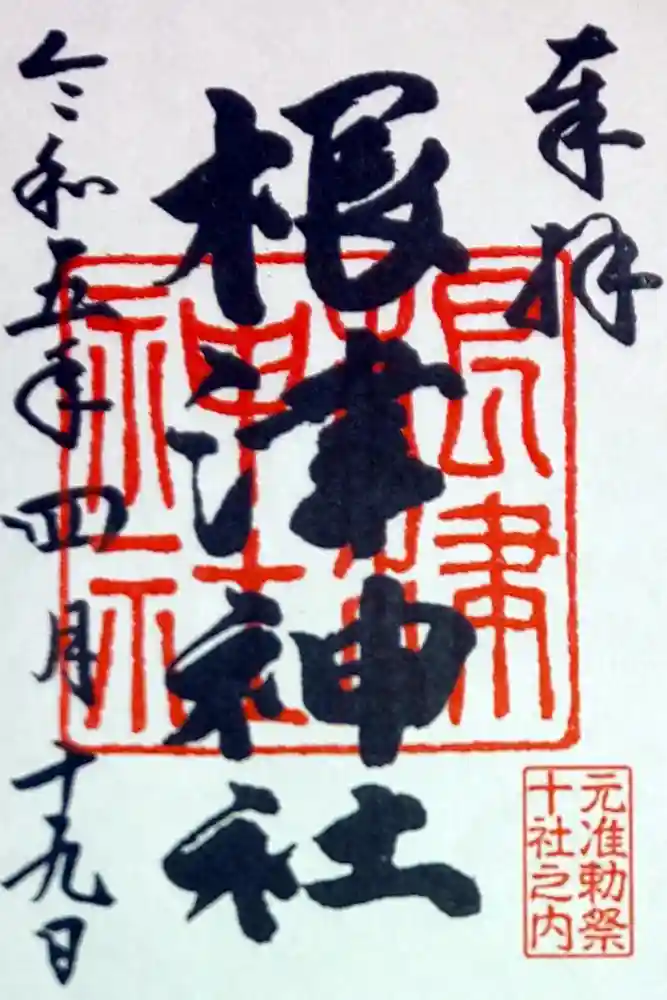 奉拝
根津神社
令和五年四月十九日
根津
神社
元准勅祭
十社之内